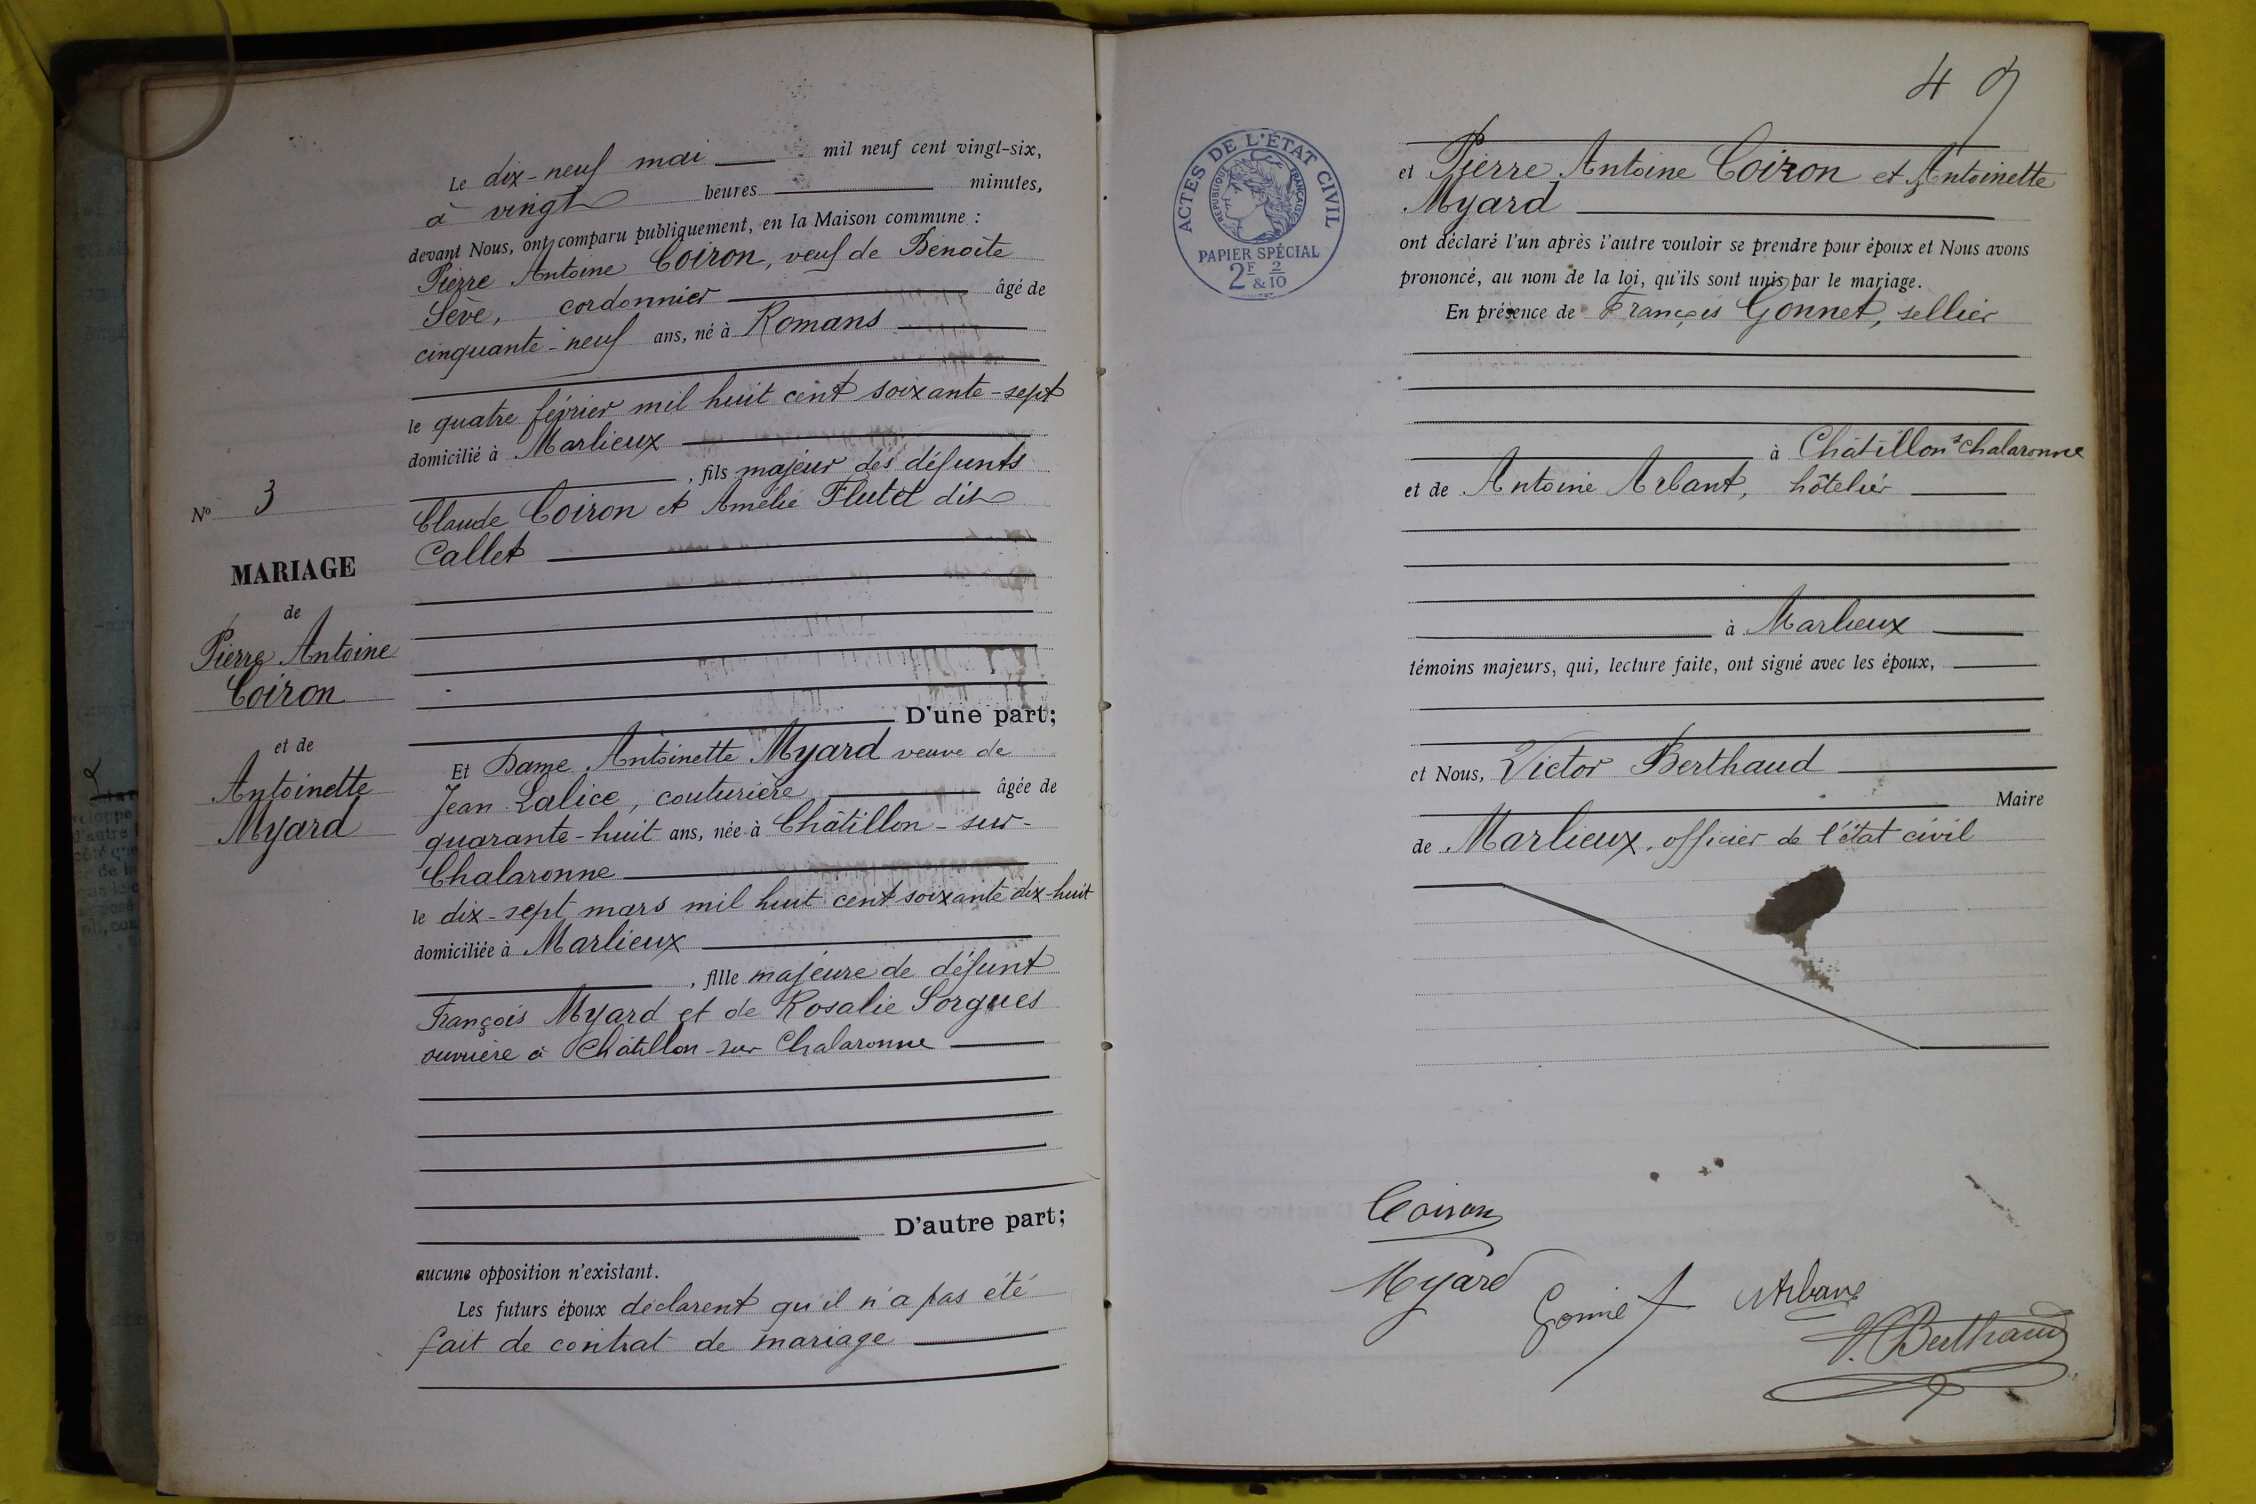 Le dix-neuf mai mil neuf cent vingt-six,
à vingt heures minutes,
devant Nous, ont comparu publiquement, en la Maison commune :
Pierre Antoine Coiron, veuf de Benoîte
Sève, cordonnier âgé de
cinquante-neuf ans, né à Romans
le quatre février mil huit cent soixante-sept
domicilié à Marlieux
, fils majeur des défunts
Claude Coiron et Amélie Flutet dit
Callet
D'une part;
N° 3
MARIAGE
de
Pierre Antoine
Coiron
et de
Antoinette
Myard
Et Dame Antoinette Myard veuve de
Jean Lalice, couturière âgée de
quarante-huit ans, née à Châtillon-sur-
Chalaronne
le dix-sept mars mil huit cent soixante dix-huit
domiciliée à Marlieux
, fille majeure de défunt
François Myard et de Rosalie Sorgues
ouvrière à Châtillon-sur Chalaronne
D'autre part;
aucune opposition n'existant.
Les futurs époux déclarent qu'il n'a pas été
fait de contrat de mariage
49
ACTES DE L'ÉTAT CIVIL
RÉPUBLIQUE FRANÇAISE
PAPIER SPÉCIAL
2F & 2/10
et Pierre Antoine Coiron et Antoinette
Myard
ont déclaré l'un après l'autre vouloir se prendre pour époux et Nous avons
prononcé, au nom de la loi, qu'ils sont unis par le mariage.
En présence de François Gonnet, sellier
à Châtillon s Chalaronne
et de Antoine Arbant, hôtelier
à Marlieux
témoins majeurs, qui, lecture faite, ont signé avec les époux,
et Nous, Victor Berthaud
Maire
de Marlieux, officier de l'état civil
Coiron
Myard
Gonnet
Arbant
V. Berthaud